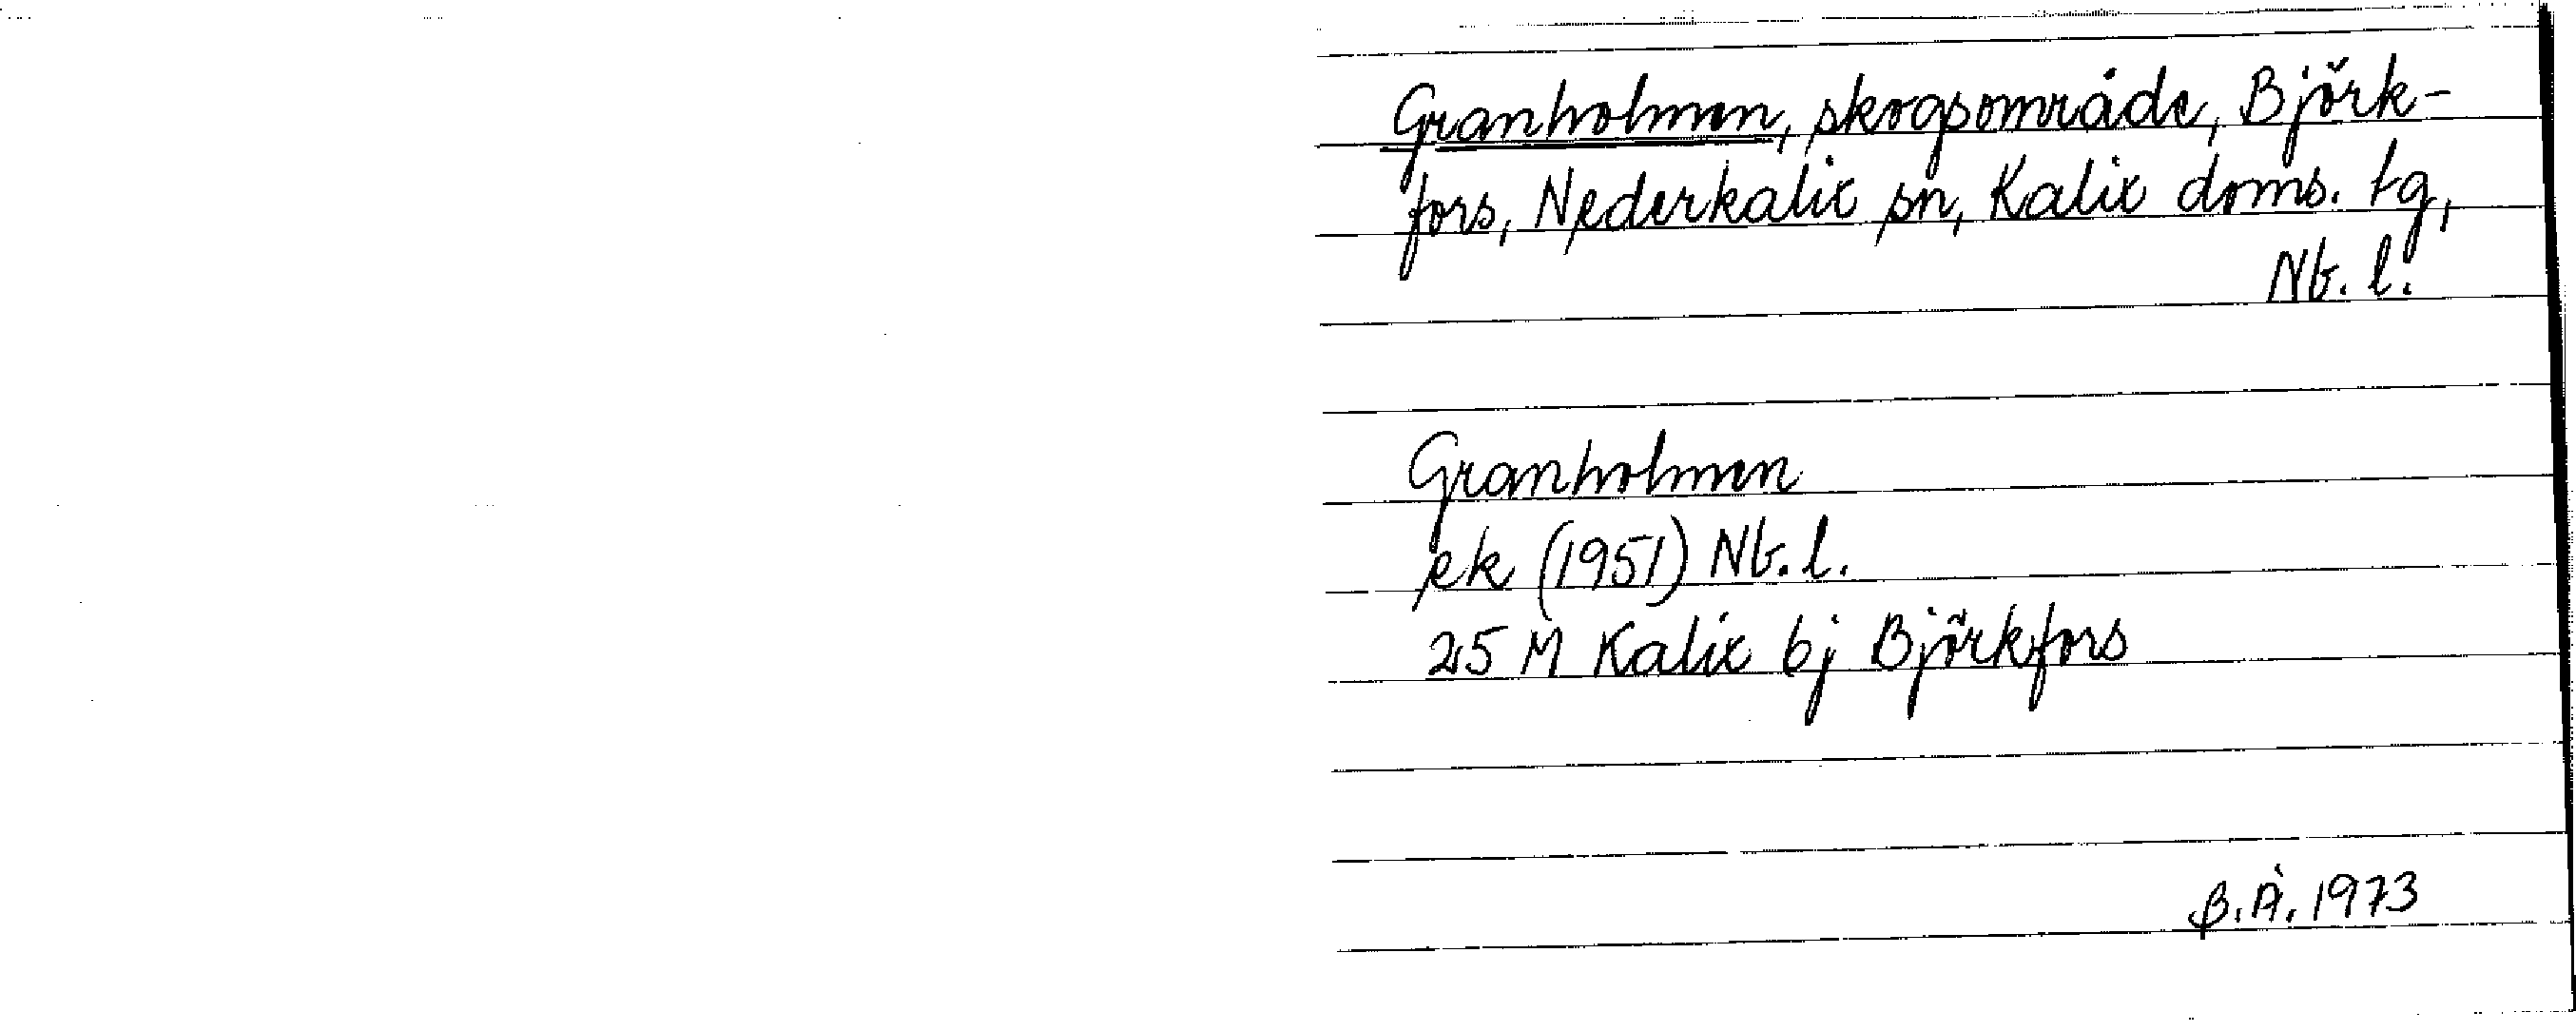 Granholmen, skogsområde, Björk-
fors, Nederkalix sn, Kalix doms. tg,
Nb. l.
Granholmen
ek (1951) Nb. l.
25 M Kalix bj Björkfors
B. Å. 1973